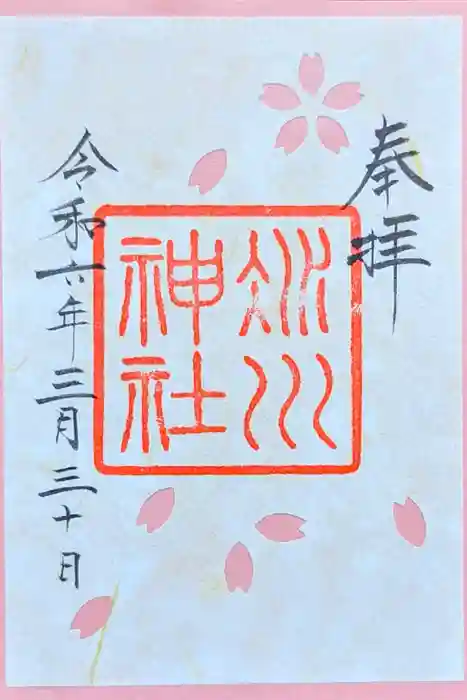 奉拝
氷川
神社
令和六年三月三十日